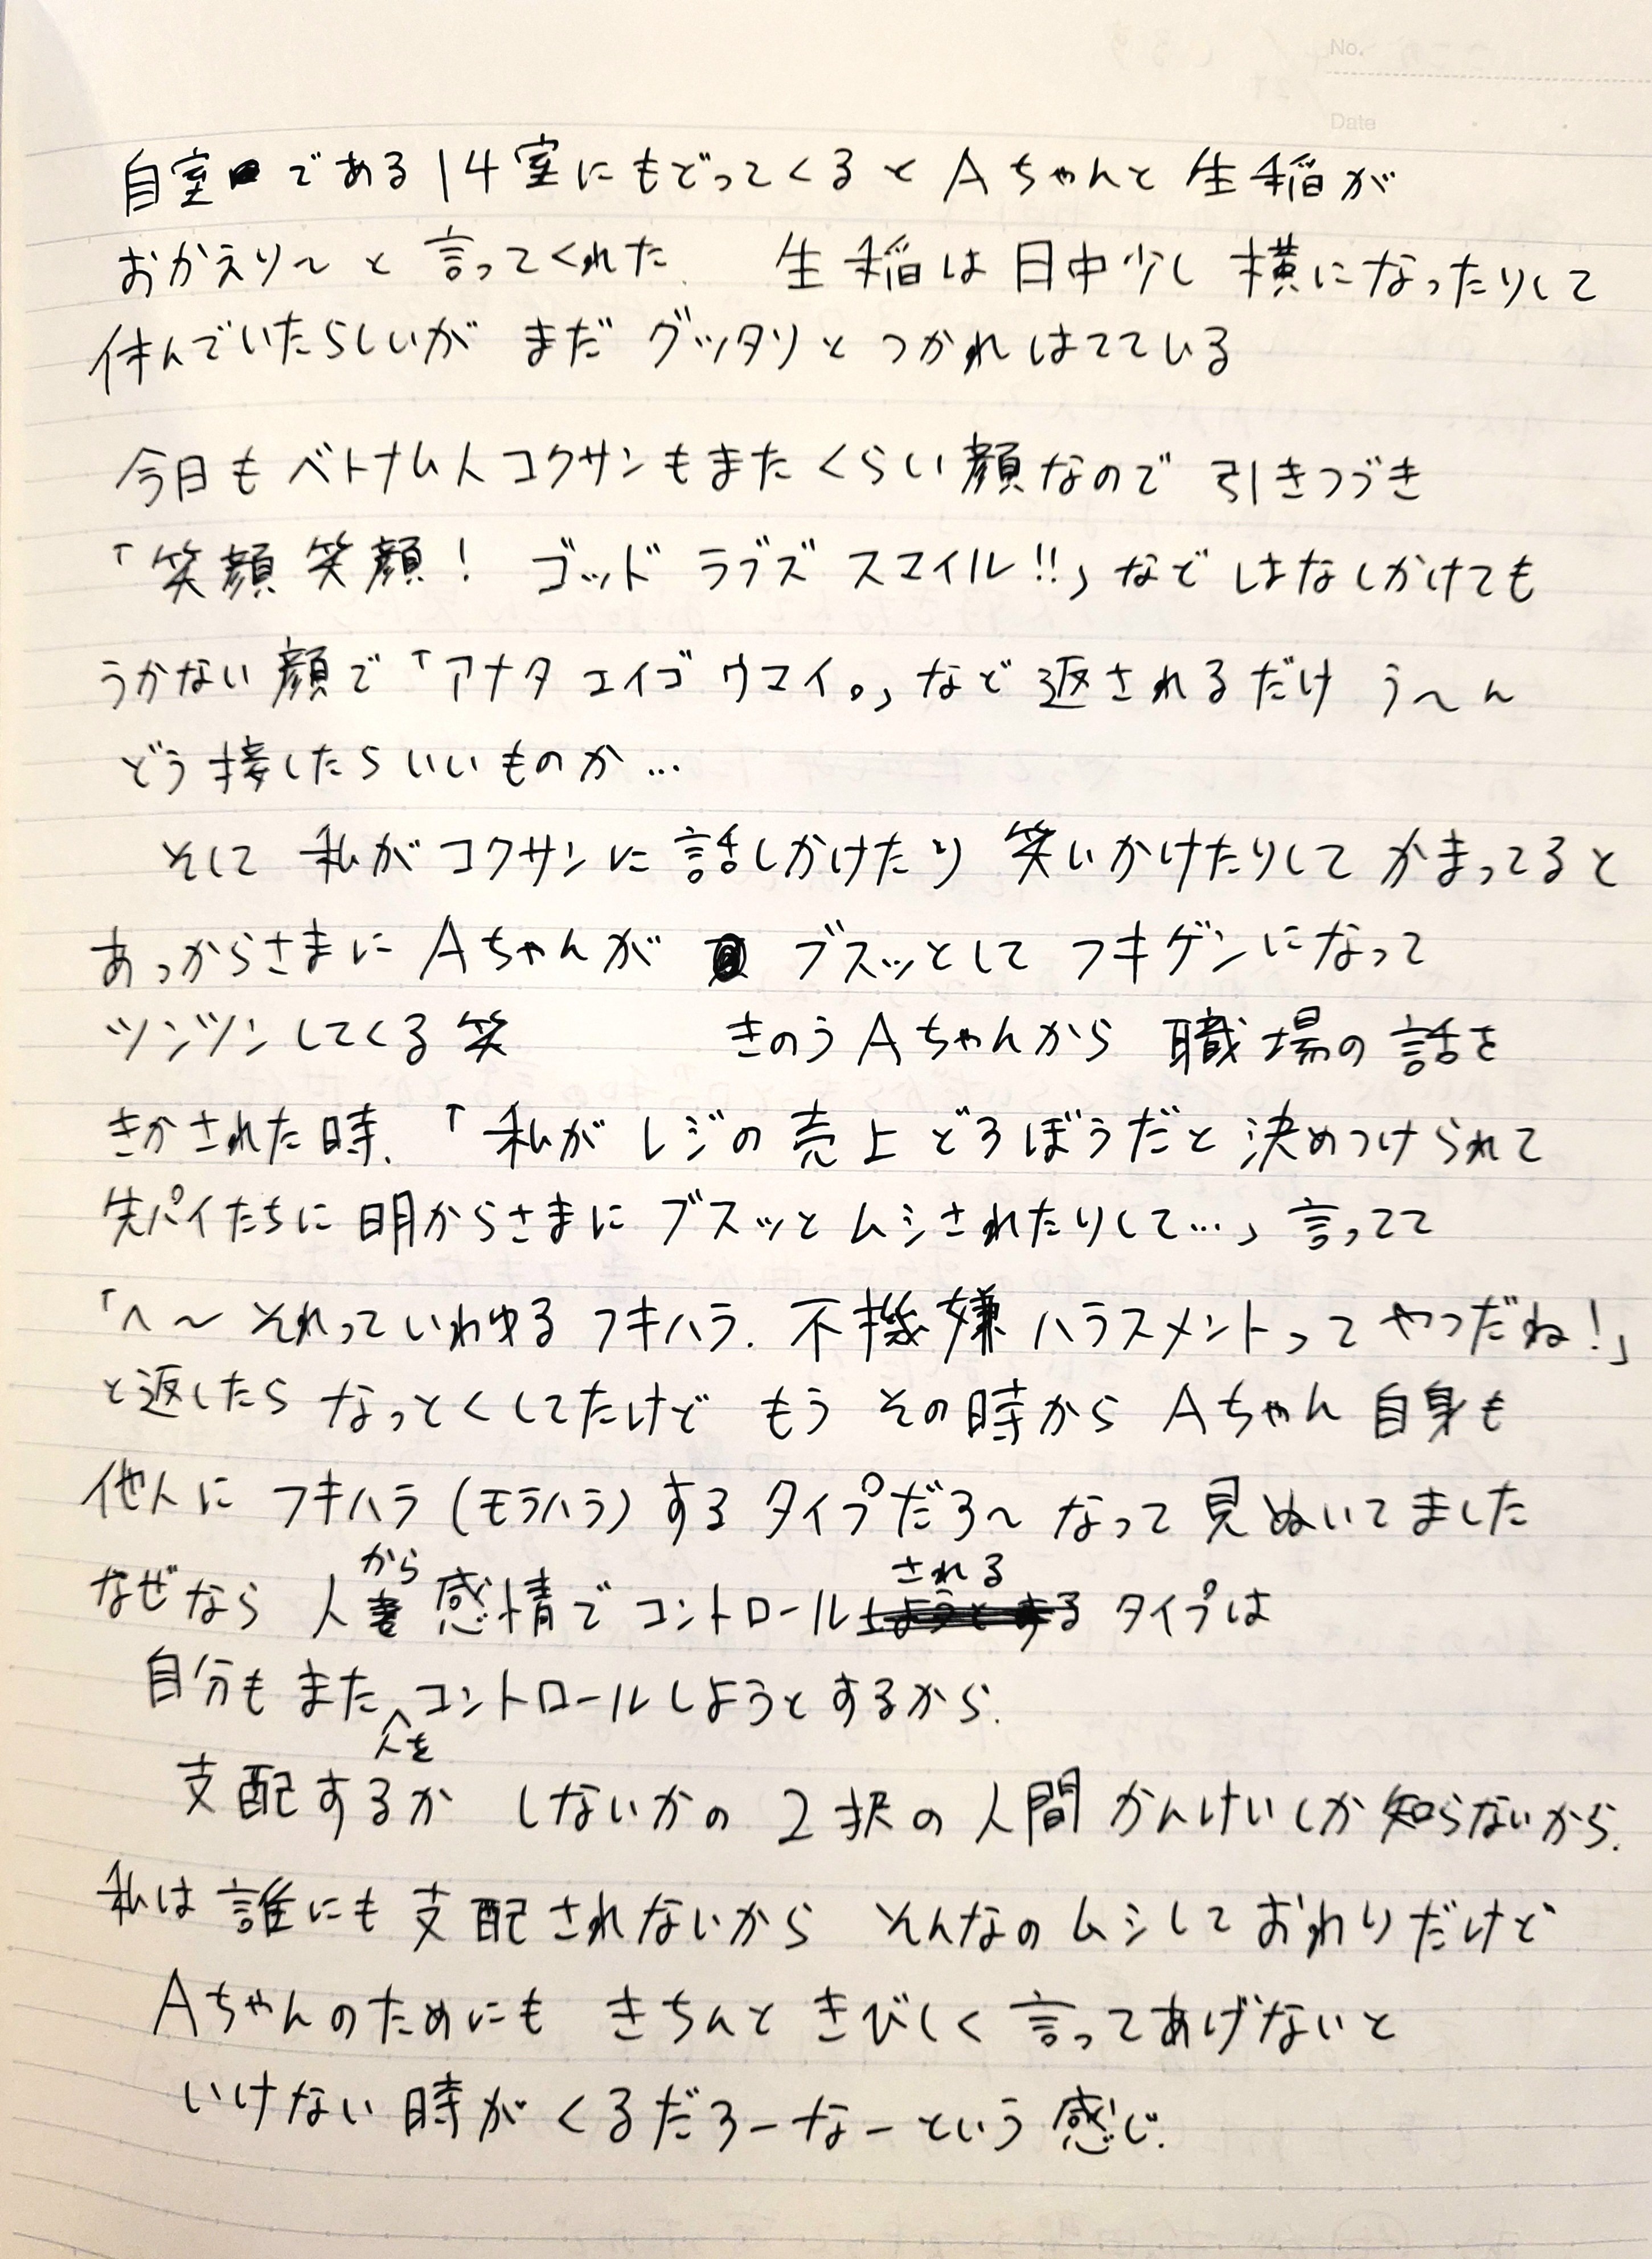 No.
Date
自室である14室にもどってくるとAちゃんと生稲が
おかえり〜と言ってくれた 生稲は日中少し横になったりして
休んでいたらしいが まだ グッタリと つかれはてている
今日もベトナム人コクサンもまたくらい顔なので 引きつづき
「笑顔笑顔! ゴッド ラブズ スマイル!!」など はなしかけても
うかない顔で「アナタ エイゴ ウマイ。」など返されるだけ う〜ん
どう接したらいいものか…
そして 私がコクサンに話しかけたり 笑いかけたりして かまってると
あっからさまに Aちゃんが ブスッとして フキゲンになって
ツンツンしてくる笑 きのうAちゃんから 職場の話を
きかされた時、「私がレジの売上どろぼうだと決めつけられて
先パイたちに明からさまに ブスッと ムシされたりして…」言ってて
「へ〜 それっていわゆる フキハラ. 不機嫌ハラスメントってやつだね!」
と返したら なっとくしてたけど もう その時から Aちゃん自身も
他人に フキハラ(モラハラ)する タイプだろ〜なって見ぬいてました
なぜなら 人から感情でコントロールされる タイプは
自分もまた人をコントロールしようとするから.
支配するか しないかの 2択の人間かんけいしか知らないから.
私は誰にも支配されないから そんなのムシしておわりだけど
Aちゃんのためにも きちんと きびしく言ってあげないと
いけない時がくるだろーなーという感じ.